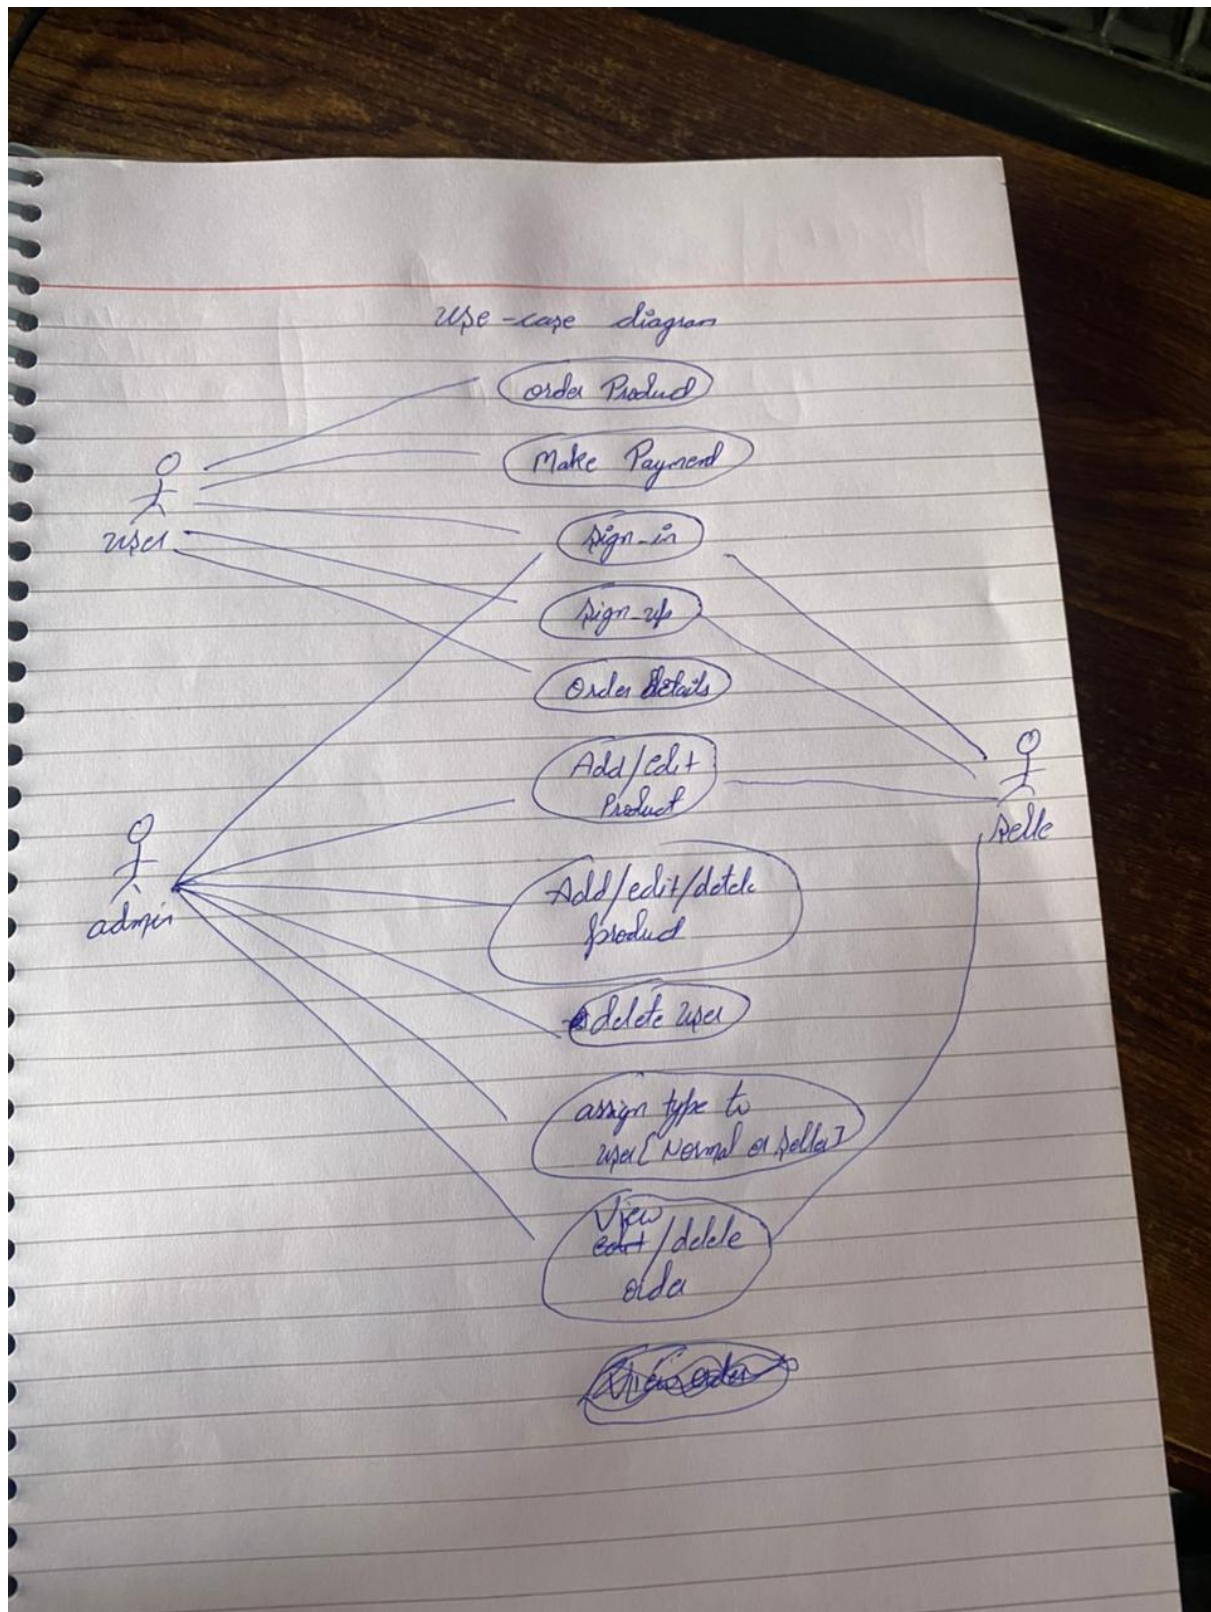 use-case diagram
order Product
Make Payment
user
sign-in
sign-up
Order details
Add/edit
Product
selle
admin
Add/edit/detele
product
delete user
assign type to
user [Normal or seller]
View
edit/delete
order
View order